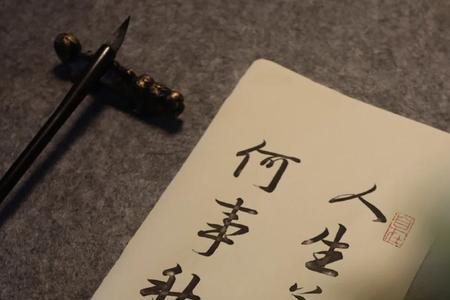 人生
何事秋